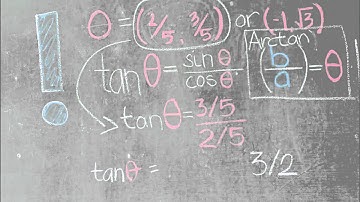 θ = (2/5, 3/5) or (-1, √3)
tan θ = sin θ / cos θ
Arctan (b/a) = θ
tan θ = 3/5 / 2/5
tan θ = 3/2